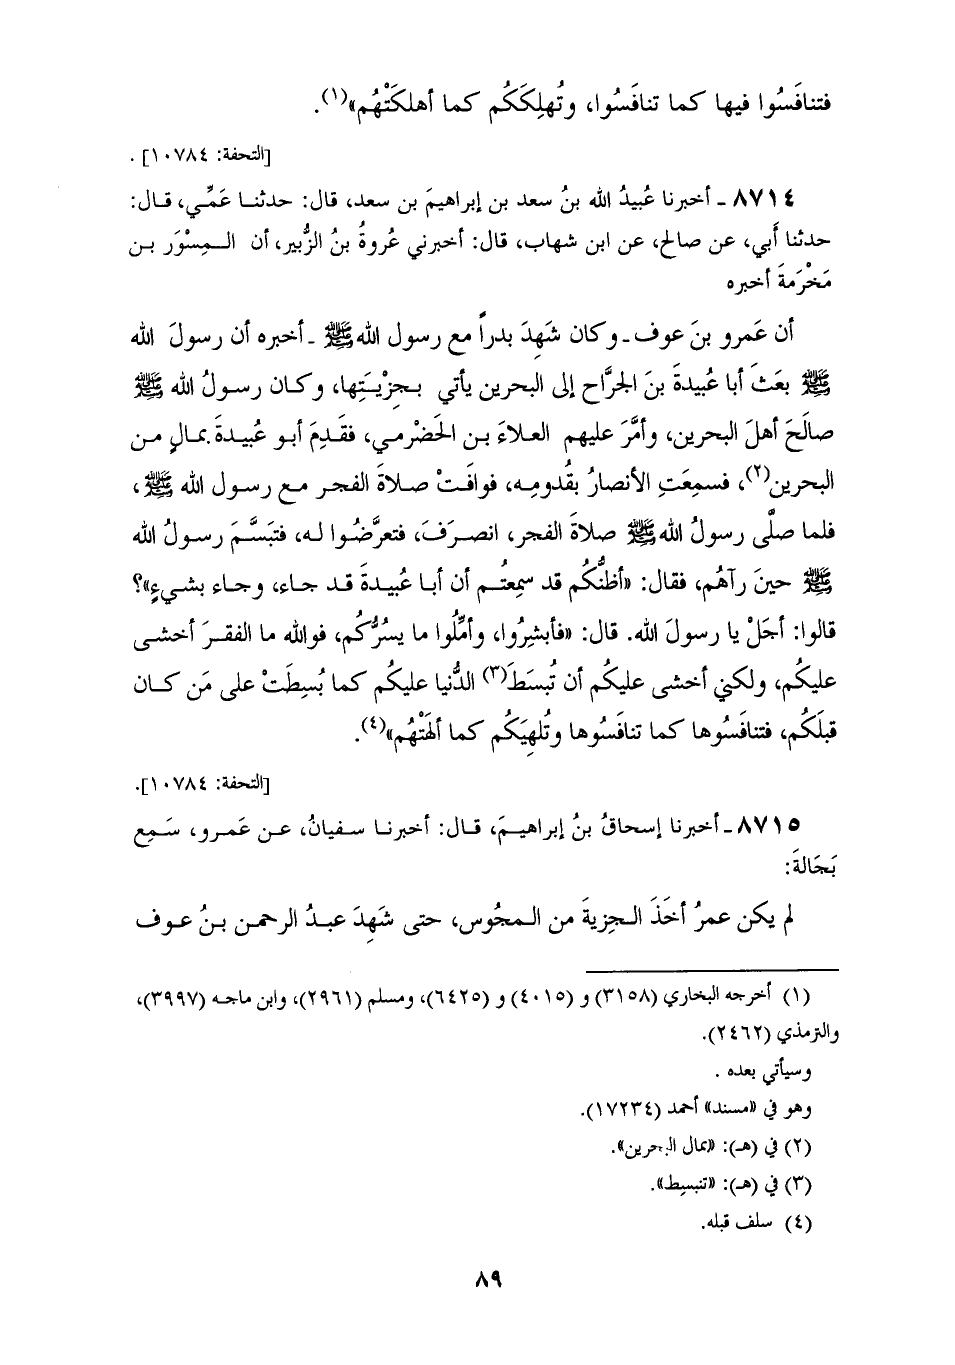 فتنافَسُوا فيها كما تنافَسُوا، وتُهلِكَكُم كما أهلكَتْهُم»(١).
[التحفة: ١٠٧٨٤] .
٨٧١٤ ـ أخبرنا عُبيدُ الله بنُ سعد بن إبراهيمَ بن سعد، قال: حدثنا عَمِّي، قال:
حدثنا أَبي، عن صالح، عن ابن شهاب، قال: أخبرني عُروةُ بنُ الزُّبير، أن المِسْوَر بن
مَخْرَمةَ أخبره
أن عَمرو بنَ عوف ـ وكان شَهِدَ بدراً مع رسول الله ﷺ ـ أخبره أن رسولَ الله
ﷺ بعَثَ أبا عُبيدةَ بنَ الجرَّاح إلى البحرين يأتي بجِزْيَتِها، وكان رسولُ الله ﷺ
صالَحَ أهلَ البحرين، وأمَّرَ عليهم العلاءَ بن الحَضْرمي، فقَدِمَ أبو عُبيدةَ بمالٍ من
البحرين(٢)، فسمِعَتِ الأنصارُ بقُدومِه، فوافَتْ صلاةَ الفجر مع رسول الله ﷺ،
فلما صلَّى رسولُ الله ﷺ صلاةَ الفجر، انصرَفَ، فتعرَّضُوا له، فتبَسَّمَ رسولُ الله
ﷺ حينَ رآهُم، فقال: «أظنُّكُم قد سمِعتُم أن أبا عُبيدةَ قد جاء، وجاء بشيءٍ»؟
قالوا: أجَلْ يا رسولَ الله. قال: «فأبشِرُوا، وأمِّلُوا ما يسُرُّكُم، فوالله ما الفقرَ أخشى
عليكُم، ولكني أخشى عليكُم أن تُبسَطَ(٣) الدُّنيا عليكُم كما بُسِطَتْ على مَن كان
قبلَكُم، فتنافَسُوها كما تنافَسُوها وتُلهِيَكُم كما ألهَتْهُم»(٤).
[التحفة: ١٠٧٨٤].
٨٧١٥ ـ أخبرنا إسحاقُ بنُ إبراهيمَ، قال: أخبرنا سفيانُ، عن عَمرو، سَمِع
بَجَالةَ:
لم يكن عمرُ أخَذَ الجزيةَ من المجُوس، حتى شَهِدَ عبدُ الرحمن بنُ عوف
(١) أخرجه البخاري (٣١٥٨) و (٤٠١٥) و (٦٤٢٥)، ومسلم (٢٩٦١)، وابن ماجه (٣٩٩٧)،
والترمذي (٢٤٦٢).
وسيأتي بعده .
وهو في «مسند» أحمد (١٧٢٣٤).
(٢) في (هـ): «بمال البحرين».
(٣) في (هـ): «تنبسِط».
(٤) سلف قبله.
٨٩